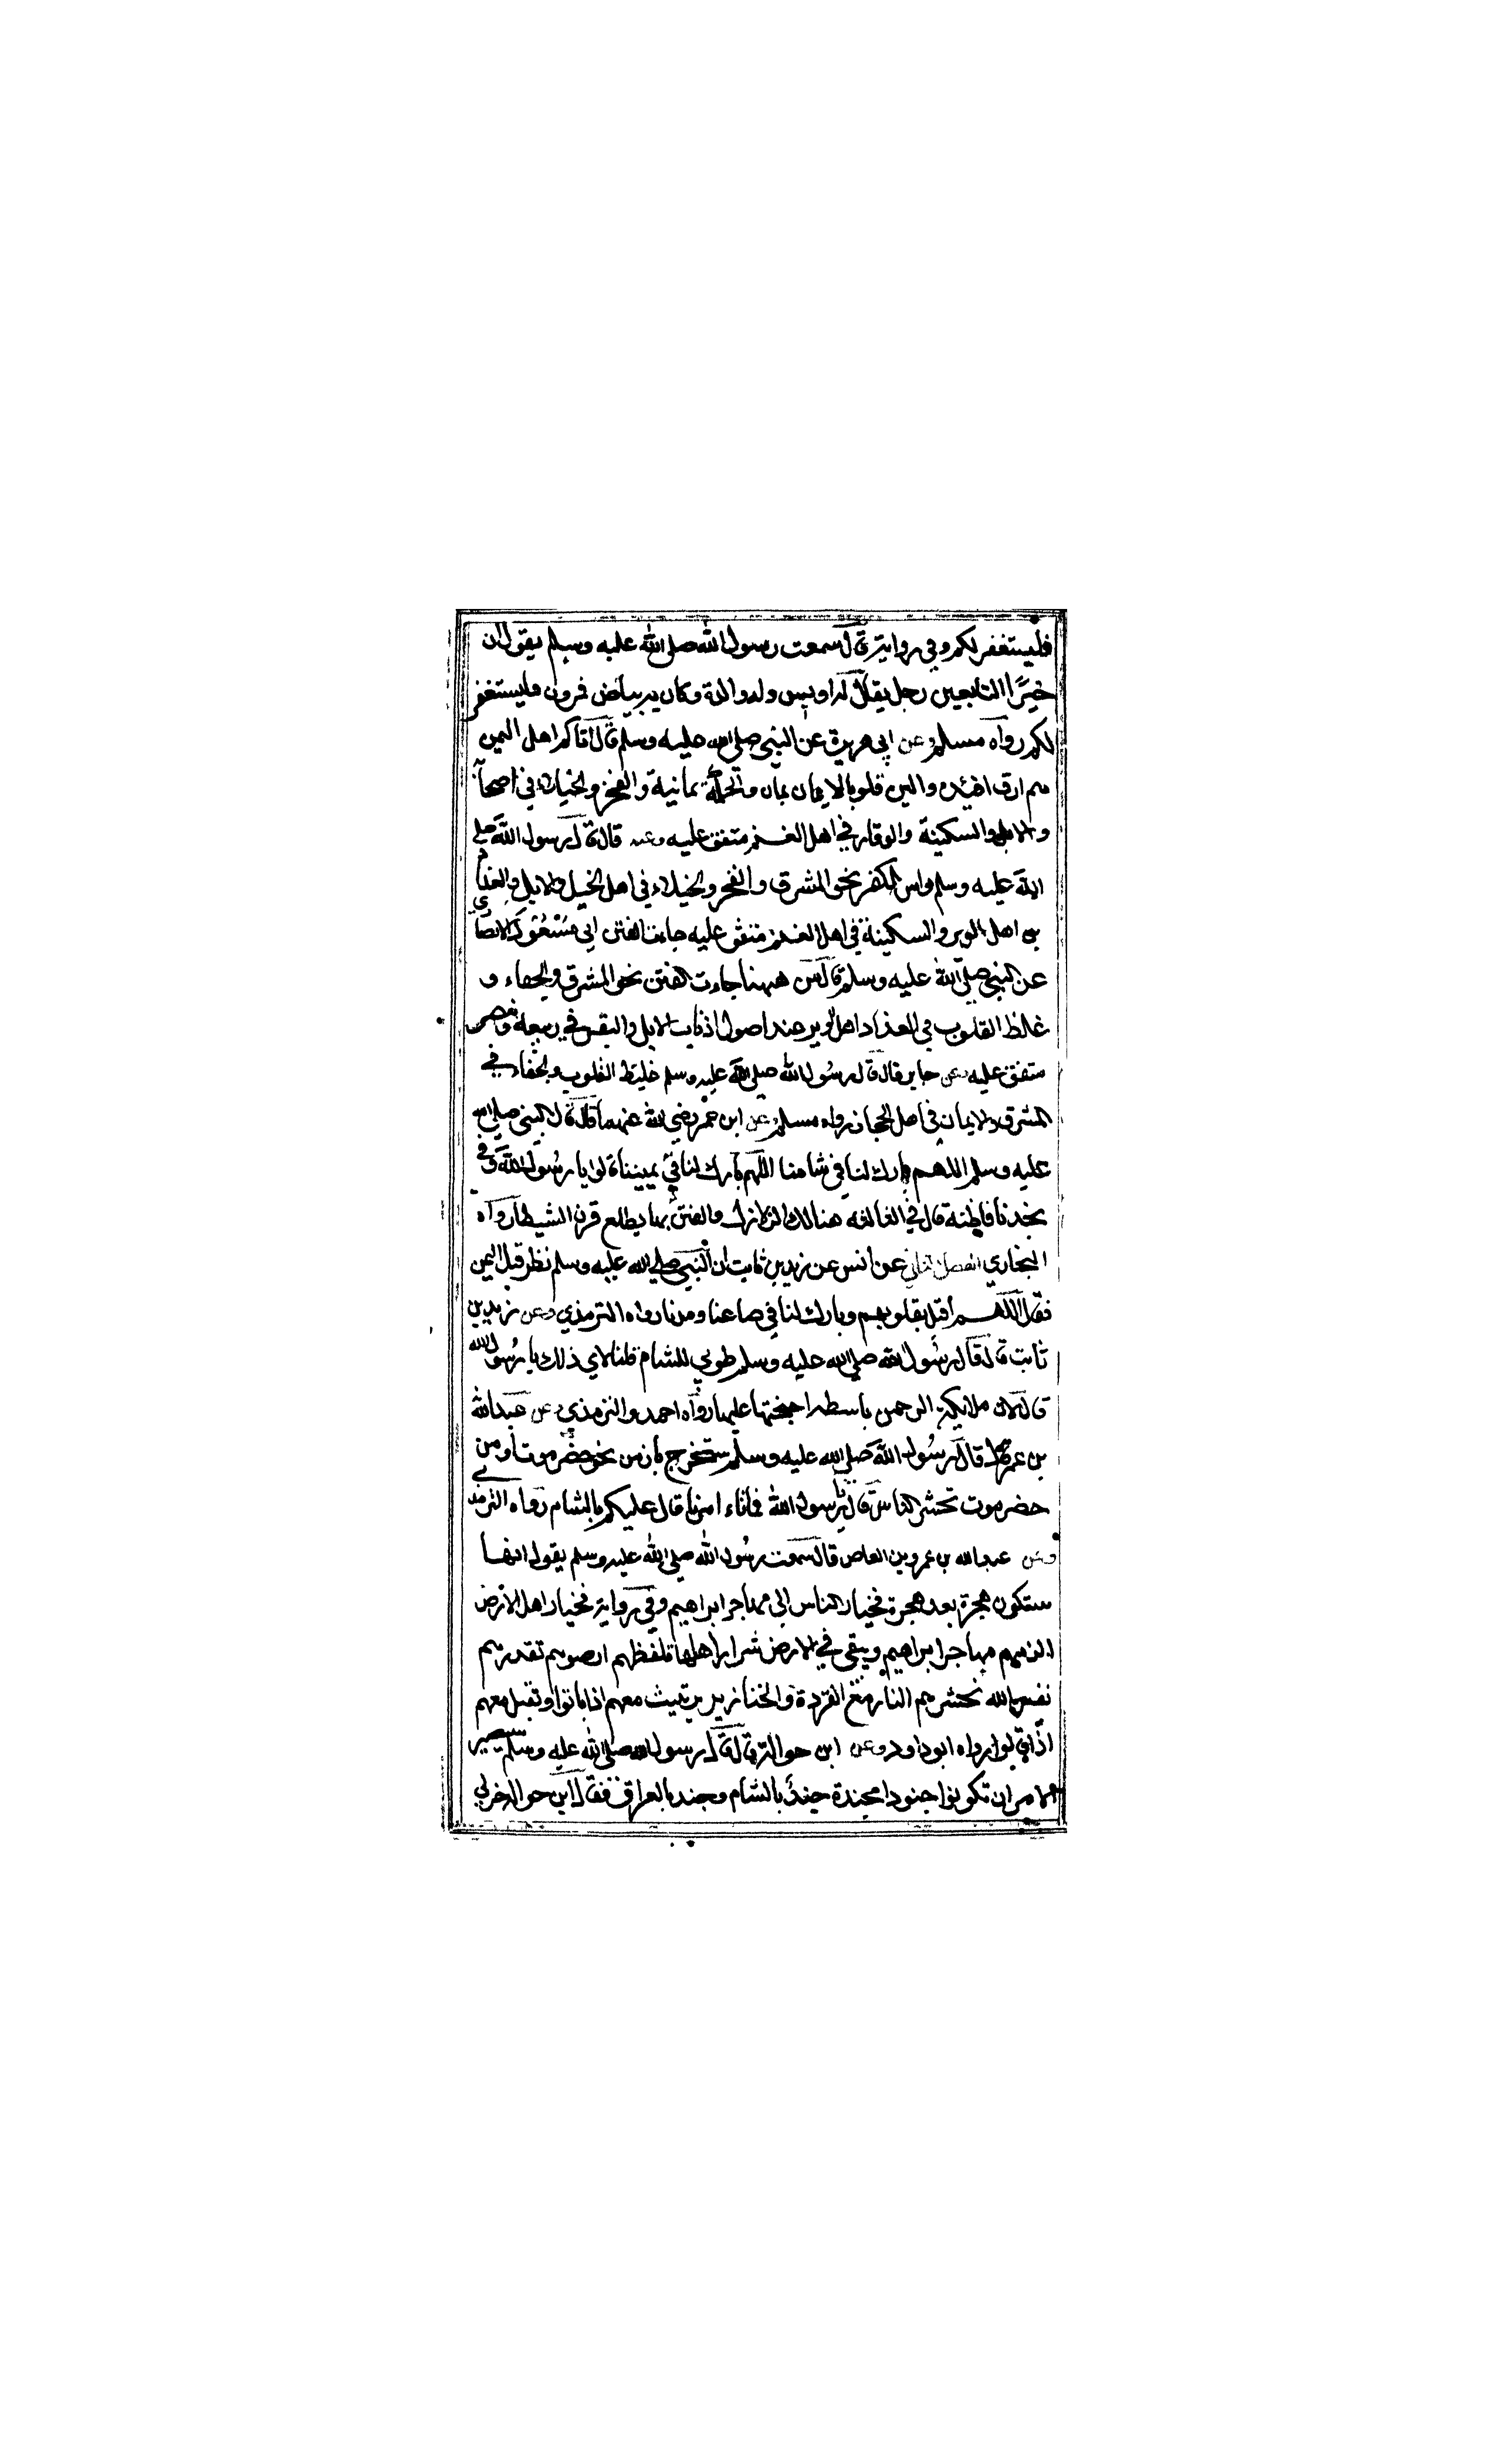 فليستغفر لكم وفي رواية قال سمعت رسول الله صلى الله عليه وسلم يقول ان
خير التابعين رجل يقال له اويس وله والدة وكان به بياض فروه فليستغفر
لكم رواه مسلم وعن ابي هريرة عن النبي صلى الله عليه وسلم قال اتاكم اهل اليمن
هم ارق افئدة والين قلوبا الايمان يمان والحكمة يمانية والفخر والخيلاء في اصحا
والابل والسكينة والوقار في اهل الغنم متفق عليه وعنه قال قال رسول الله صلى
الله عليه وسلم راس الكفر نحو المشرق والفخر والخيلاء في اهل الخيل والابل والفدا
ين اهل الوبر والسكينة في اهل الغنم متفق عليه جاءت الفتن ابي مسعود الانصاري
عن النبي صلى الله عليه وسلم قال من ههنا جاءت الفتن نحو المشرق والجفاء و
غلظ القلوب في الفداد اهل الوبر عند اصول اذناب الابل والبقر في ربيعة ومضر
متفق عليه وعن جابر قال قال رسول الله صلى الله عليه وسلم غليظ القلوب والجفاء في
المشرق والايمان في اهل الحجاز رواه مسلم وعن ابن عمر رضي الله عنهما قال قال النبي صلى الله
عليه وسلم اللهم بارك لنا في شامنا اللهم بارك لنا في يميننا قالوا يا رسول الله وفي
نجدنا فاظنه قال في الثالثة هنالك الزلازل والفتن بها يطلع قرن الشيطان رواه
البخاري الفصل الثاني عن انس عن زيد بن ثابت ان النبي صلى الله عليه وسلم نظر قبل اليمن
فقال اللهم اقبل بقلوبهم وبارك لنا في صاعنا ومدنا رواه الترمذي وعن زيد بن
ثابت قال قال رسول الله صلى الله عليه وسلم طوبي للشام قلنا لاي ذلك يا رسول الله
قال لان ملائكة الرحمن باسطة اجنحتها عليها رواه احمد والترمذي وعن عبدالله
بن عمر قال قال رسول الله صلى الله عليه وسلم ستخرج نار من نحو حضرموت او من
حضرموت تحشر الناس قال يا رسول الله فما تاء امرنا قال عليكم بالشام رواه الترمذي
وعن عبدالله بن عمرو بن العاص قال سمعت رسول الله صلى الله عليه وسلم يقول انها
ستكون هجرة بعد هجرة فخيار الناس الي مهاجر ابراهيم وفي رواية فخيار اهل الارض
الزمهم مهاجر ابراهيم ويبقي في الارض شرار اهلها تلفظهم ارضوهم تقذرهم
نفس الله تحشرهم النار مع القردة والخنازير تبيت معهم اذا باتوا وتقيل معهم
اذا قالوا رواه ابو داود وعن ابن حوالة قال قال رسول الله صلى الله عليه وسلم سيصير
الامر ان تكونوا جنودا مجندة جند بالشام وجند بالعراق فقال ابن حوالة خر لي